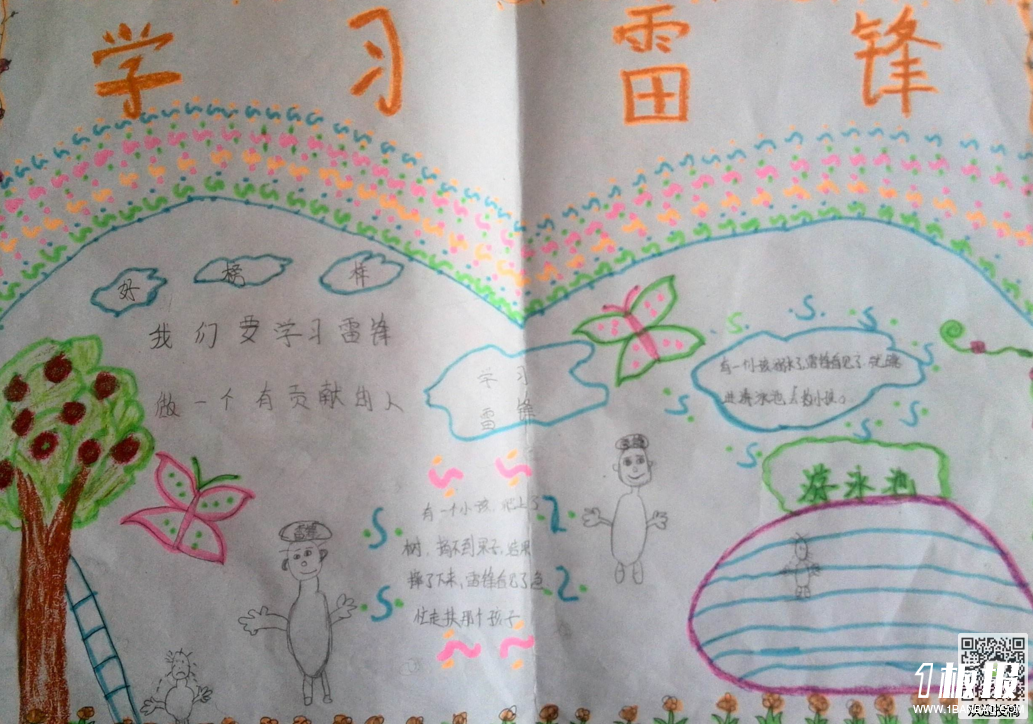 学习雷锋
好榜样
我们要学习雷锋
做一个有贡献的人
学习
雷锋
有一个小孩,爬上了
树,摘不到果子,结果
摔了下来,雷锋看见了急
忙走扶那个孩子
雷锋
雷锋
有一个小孩溺水了,雷锋看见了,就跳
进游泳池去救小孩。
游泳池
1板报
WWW.1BANBAO.COM
欢迎投稿